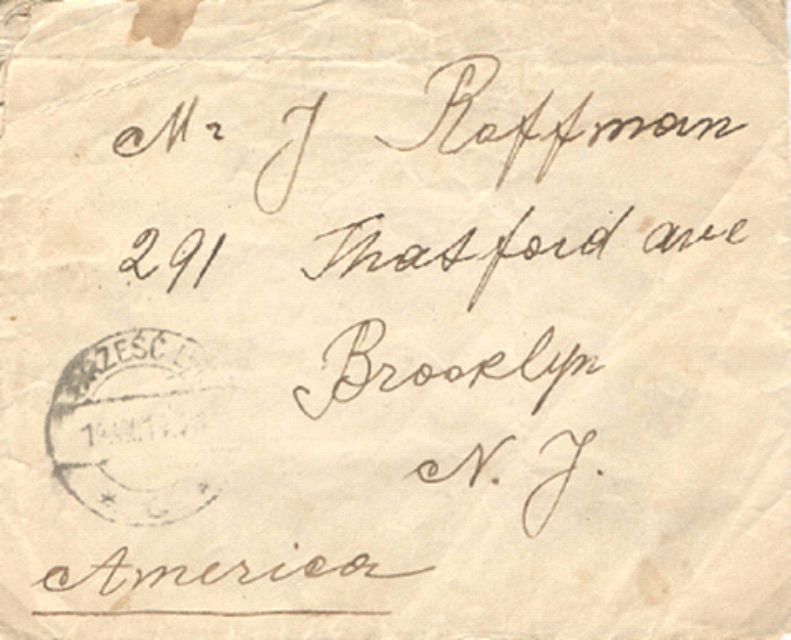 Mr J Roffman
291 Thatford ave
Brooklyn
N. J.
RZEŚĆ
America